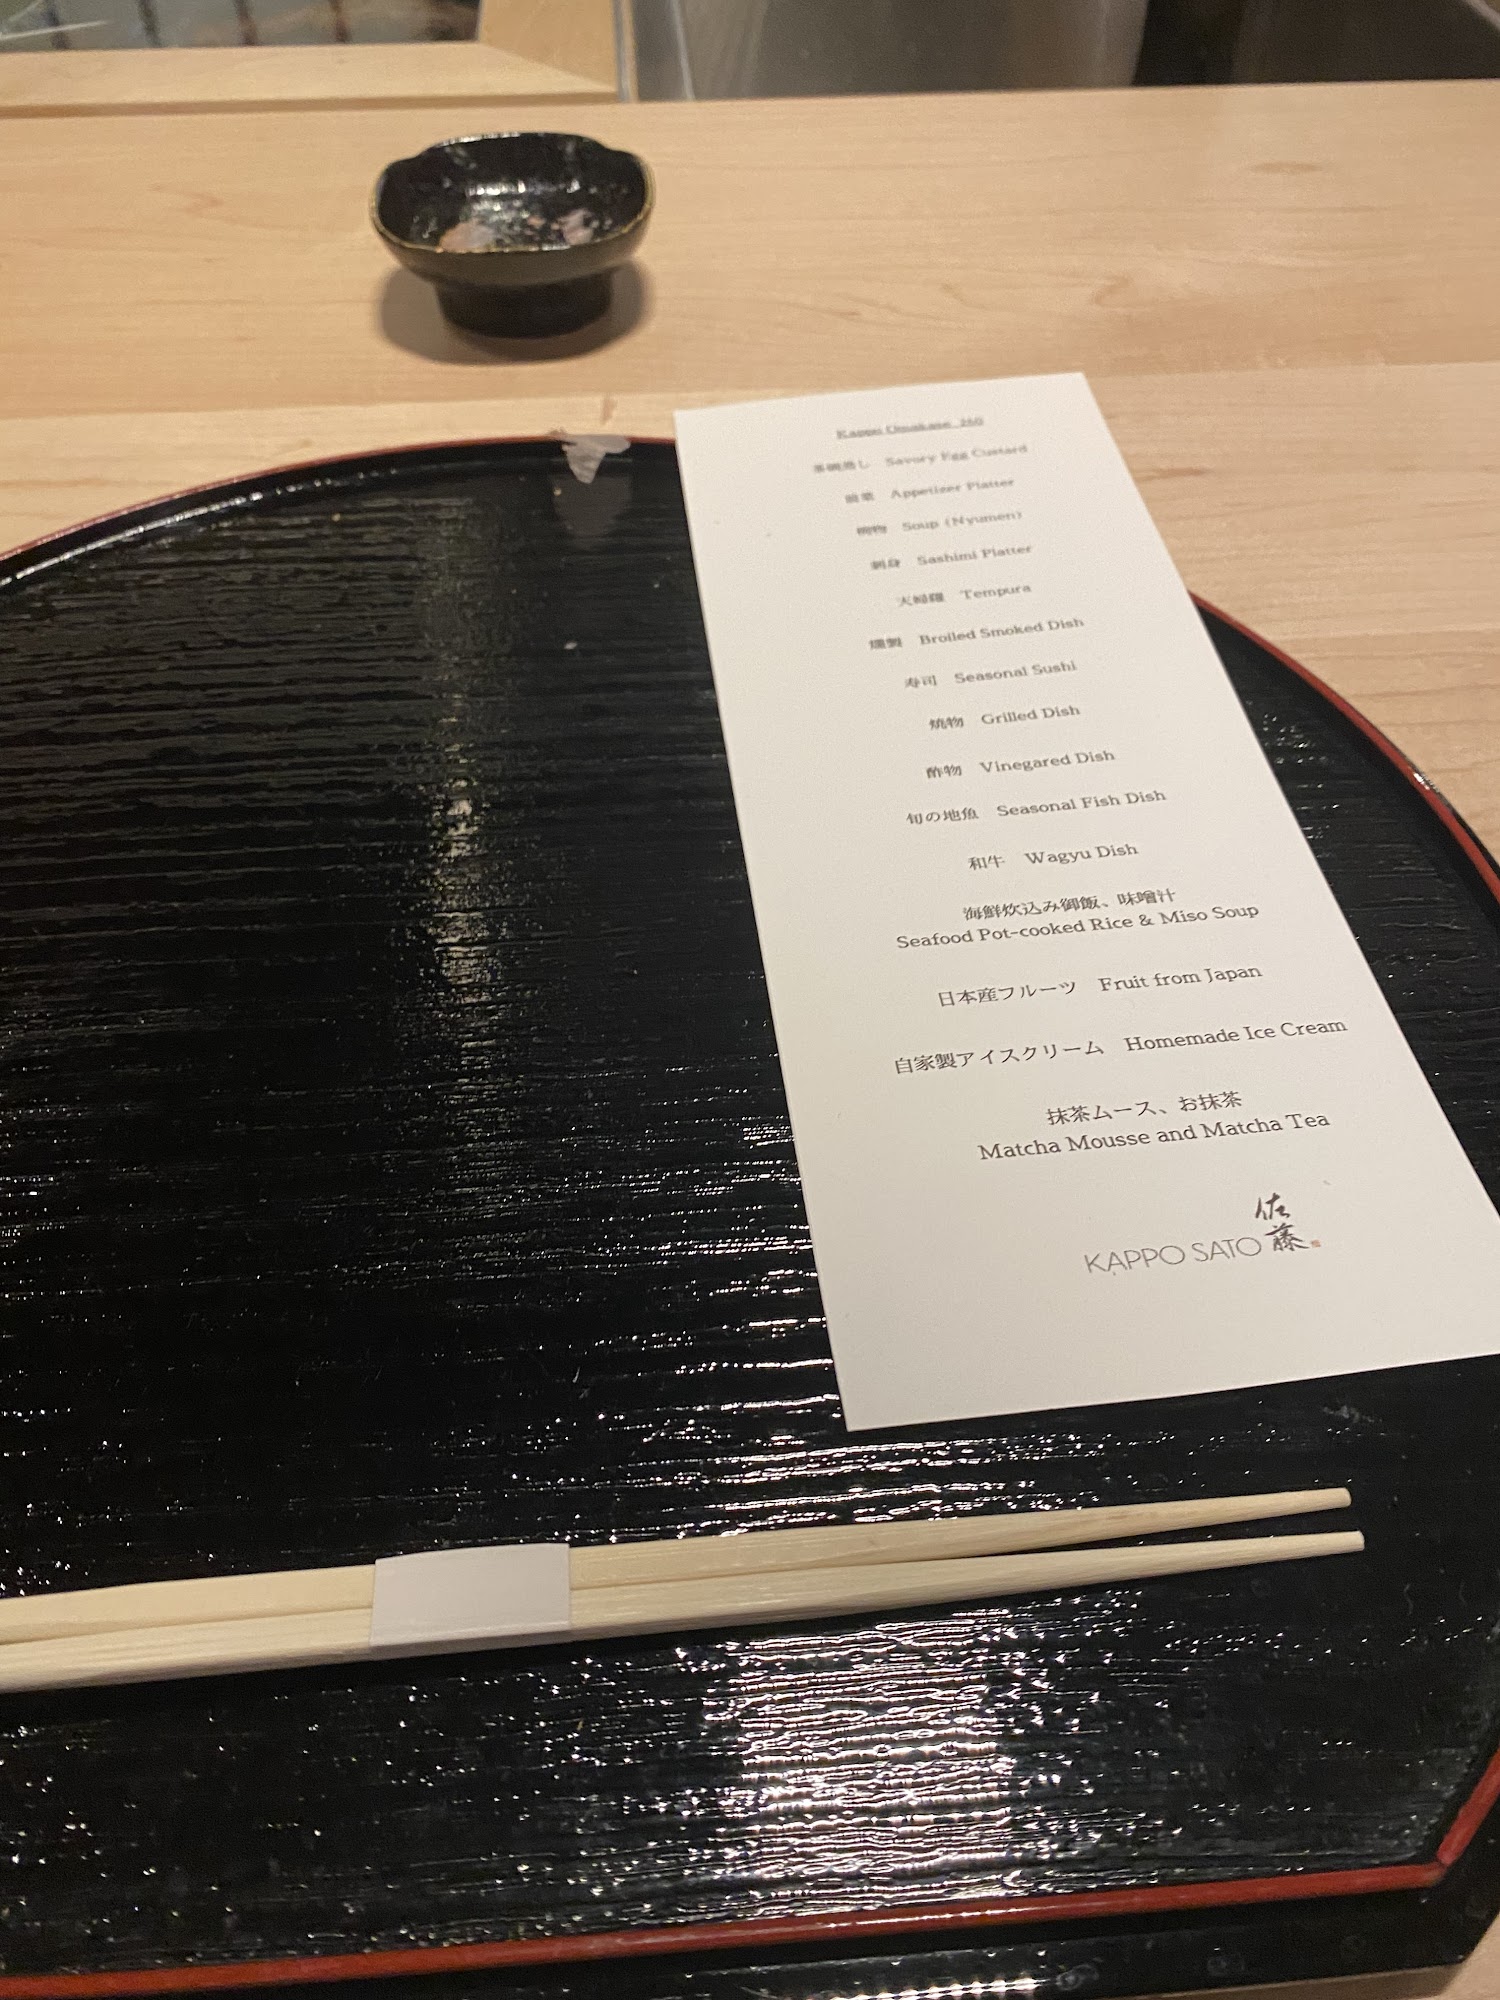 Kappo Omakase 260
茶碗蒸し Savory Egg Custard
前菜 Appetizer Platter
椀物 Soup (Nyumen)
刺身 Sashimi Platter
天婦羅 Tempura
燻製 Broiled Smoked Dish
寿司 Seasonal Sushi
焼物 Grilled Dish
酢物 Vinegared Dish
旬の地魚 Seasonal Fish Dish
和牛 Wagyu Dish
海鮮炊込み御飯、味噌汁
Seafood Pot-cooked Rice & Miso Soup
日本産フルーツ Fruit from Japan
自家製アイスクリーム Homemade Ice Cream
抹茶ムース、お抹茶
Matcha Mousse and Matcha Tea
KAPPO SATO 佐藤